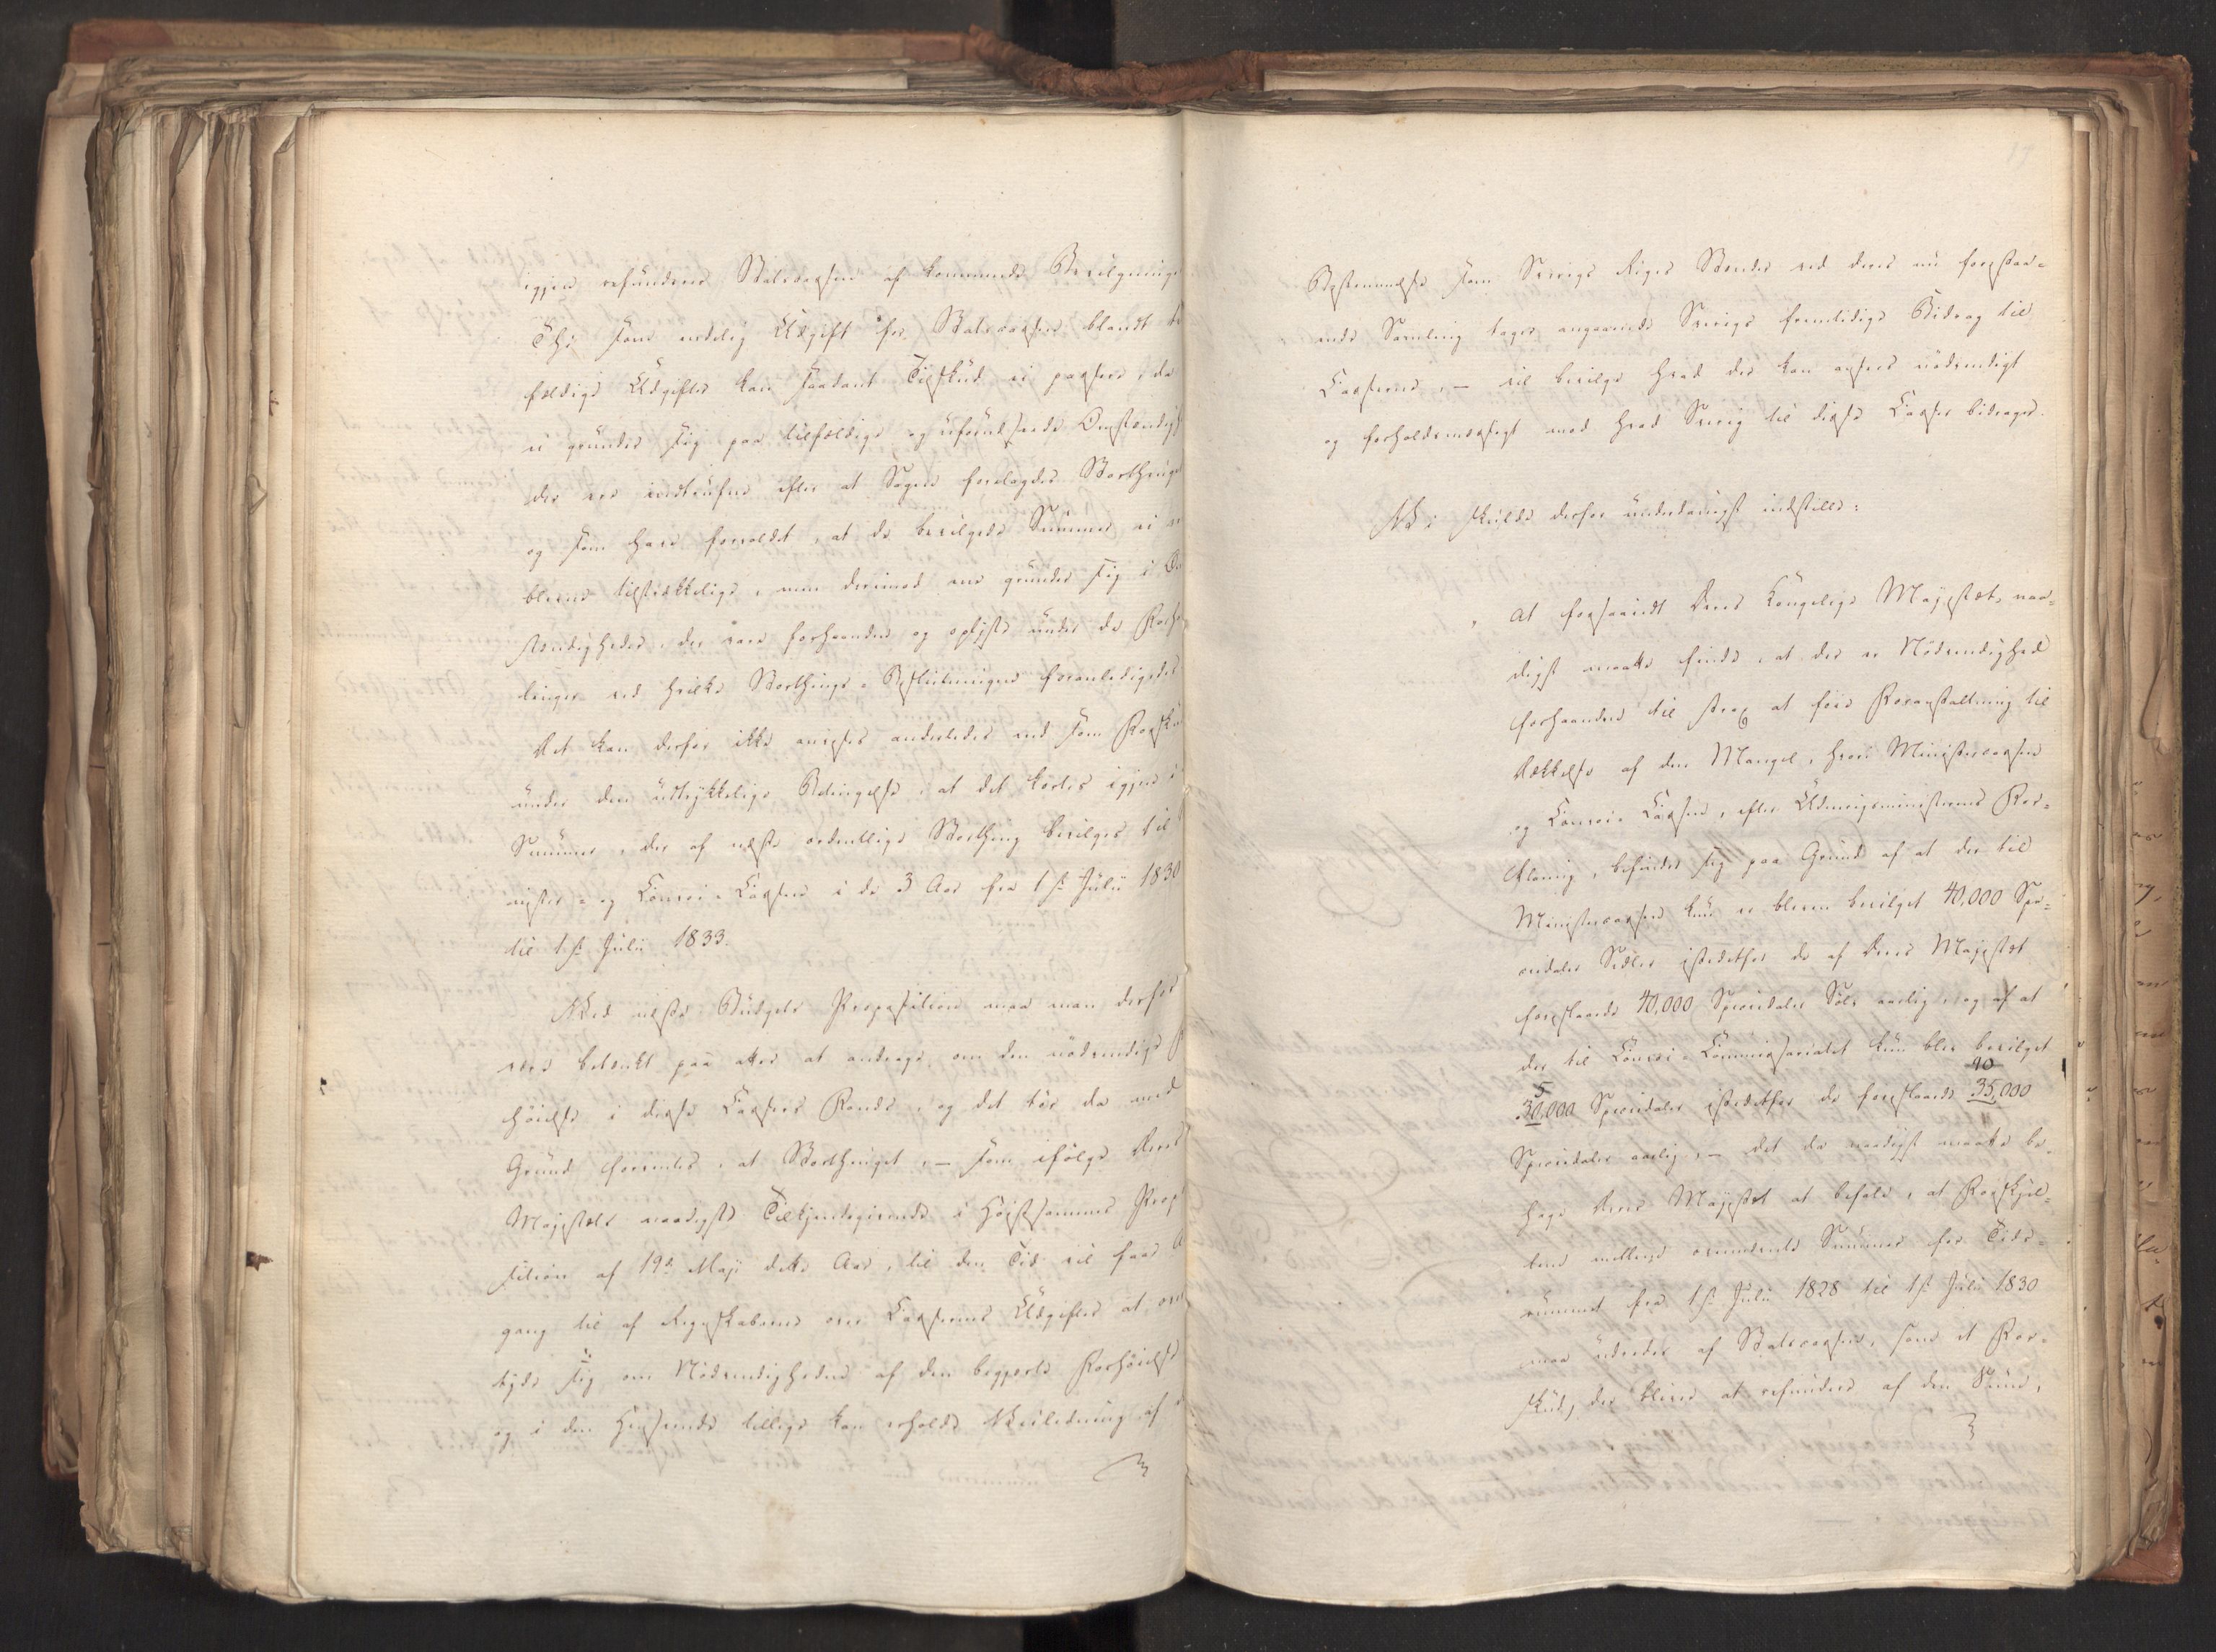 igjen refunderes Statscassen af kommende Bevilgninger
Thi som endelig Udgift for Statscassen blandt til
fældige Udgifter kan saadant Tilskud ei passere, da
ei grunder sig paa tilfældige og uforudseede Omstændigh
der ere indtrufne efter at Sagen forelagdes Storthinget
og som have forvoldt, at de bevilgede Summer ei er
blevne tilstrækkelige, men derimod ere grundet sig i Om
stændigheder, der vare forhaanden og oplyste under de Forha
linger ved hvilke Storthings-Beslutningen foranledigedes
Det kan derfor ikke ansees anderledes end som Forskud
under den udtrykkelige Betingelse, at det kortes igjen i
Summer, der af næste ordentlige Storthing bevilges til
nister- og Convoi-Cassen i de 3 Aar fra 1ste Julii 1830
til 1ste Julii 1833.
Med næste Budgets Proposition maa man derfor
være betænkt paa atter at andrage om den nødvendige F
høielse i disse Cassers Fonds, og det tør da med
Grund forventes, at Storthinget, – som ifølge Deres
Majestæts naadigste Tilkjendegivende i Høistsammes Prop
sition af 19de Maji dette Aar, til den Tid vil faae A
gang til af Regnskaberne over Cassernes Udgifter at over
tyde sig om Nødvendigheden af den begjerte Forhøielse
og i den Henseende tillige kan erholde Veiledning af d
14
Bestemmelse som Sverigs Riges Stænder ved deres nu forestaa-
ende Samling tager angaaende Sverigs fremtidige Bidrag til
Casserne, – vil bevilge hvad der kan ansees nødvendigt
og forholdsmæssigt med hvad Sverig til disse Casser bidrager.
Vi skulde derfor underdanigst indstille:
at forsaavidt Deres Kongelige Majestæt naa-
digst maatte finde, at der er Nødvendighed
forhaanden til strax at føie Foranstaltning til
Dækkelse af den Mangel, hvori Ministercassen
og Convoi-Cassen, efter Udenrigsministerens For-
klaring, befinder sig paa Grund af at der til
Ministercassen kun er bleven bevilget 40,000 Spe-
ciedaler Sedler istedetfor de af Deres Majestæt
foreslaaede 40,000 Speciedaler Sølv aarlig, og af at
der til Convoi-Commissariatet kun blev bevilget
5 40
30,000 Speciedaler istedetfor de foreslaaede 35,000
Speciedaler aarlig, – det da naadigst maatte be-
hage Deres Majestæt at befale, at Forskjel-
len mellem ommeldte Summer for Tids-
rummet fra 1ste Julii 1828 til 1ste Julii 1830
maa udredes af Statscassen, som et For-
skud, der bliver at refundere af den Sum,